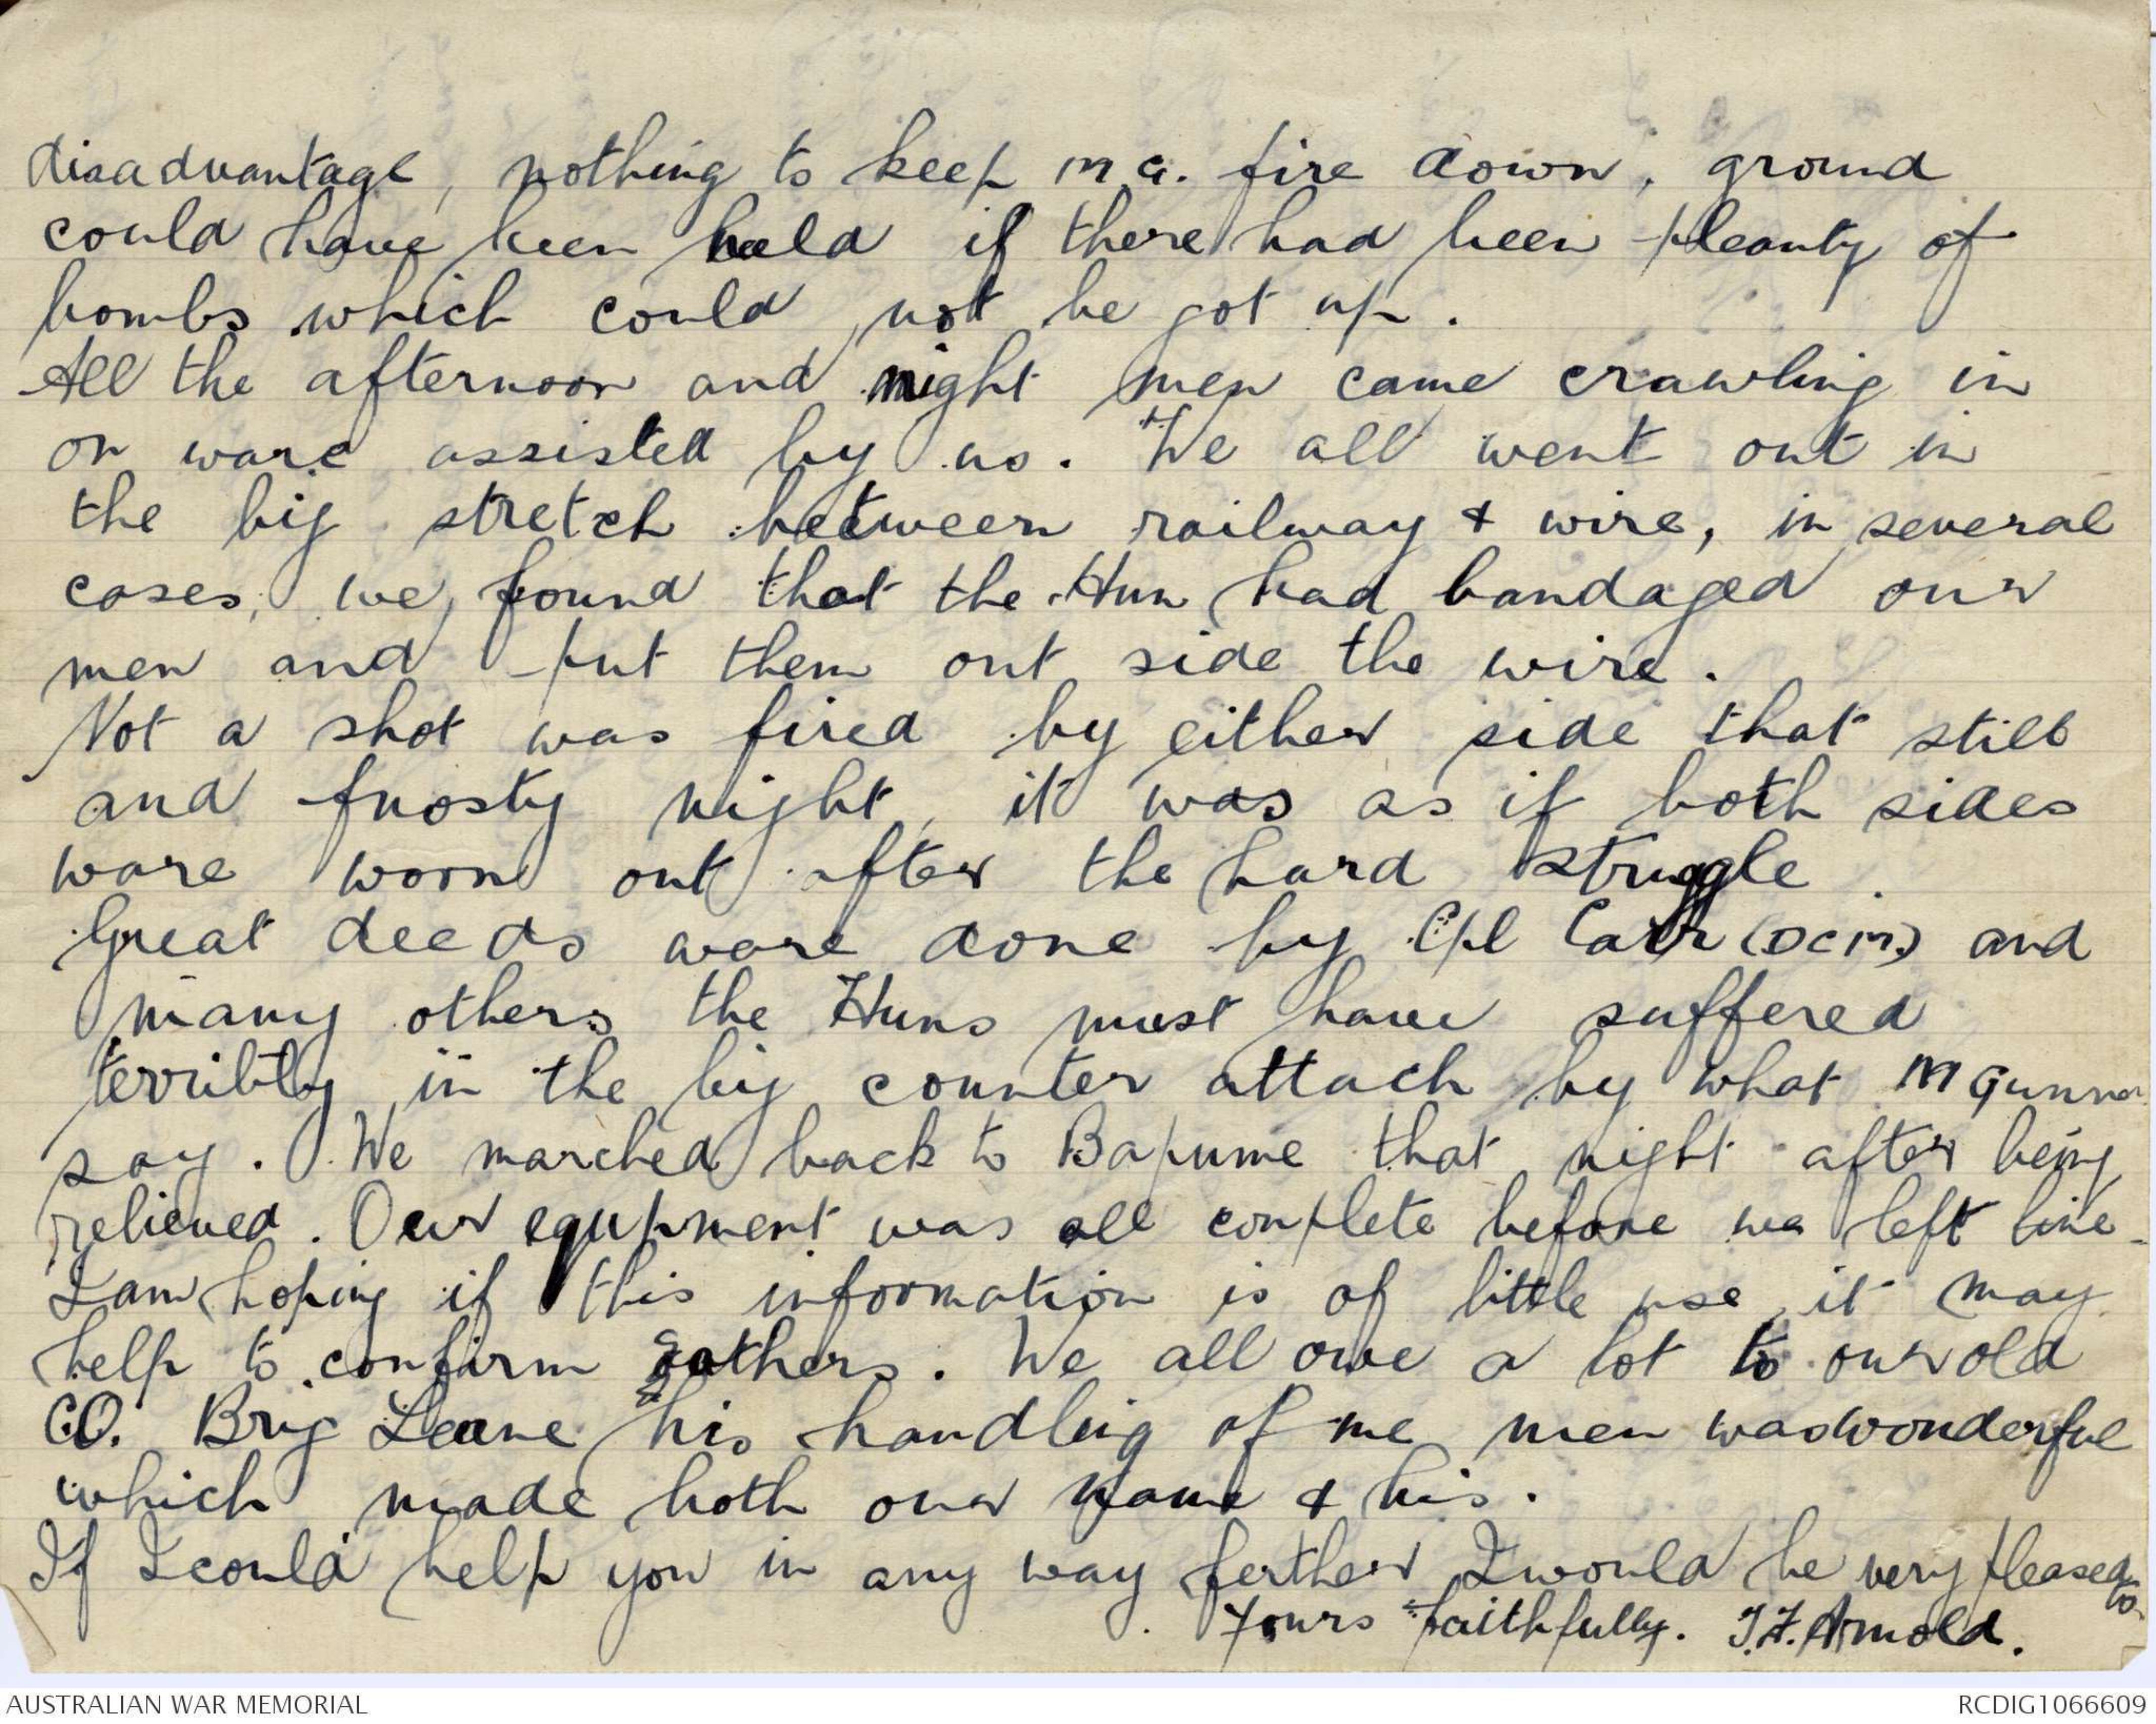 disadvantage, nothing to keep M.G. fire down, ground
could have been held if there had been pleanty of
bombs which could not be got up.
All the afternoon and night men came crawling in
or ware assisted by us. We all went out in
the big stretch between railway & wire, in several
cases, we found that the Hun had bandaged our
men and put them out side the wire.
Not a shot was fired by either side that still
and frosty night, it was as if both sides
ware worn out after the hard struggle.
Great deeds ware done by Cpl Carr (DCM) and
many others the Huns must have suffered
terribly in the big counter attach by what M Gunners
say. We marched back to Bapume that night after being
relieved. Our equpment was all conplete before we left line.
I am hoping if this information is of little use, it may
help to confirm others. We all owe a lot to our old
CO. Brig Leane his handling of me men was wonderful
which made both our name & his.
If I could help you in any way ferther I would be very pleased to.
Yours faithfully. T.F. Arnold.
AUSTRALIAN WAR MEMORIAL
RCDIG1066609